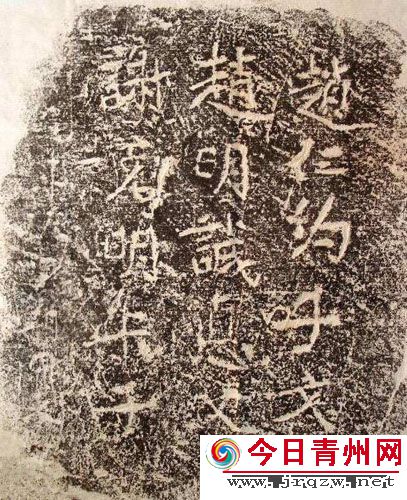 趙仁約子文
趙明誠悳父
謝克明
今日青州网
www.jrqzw.net